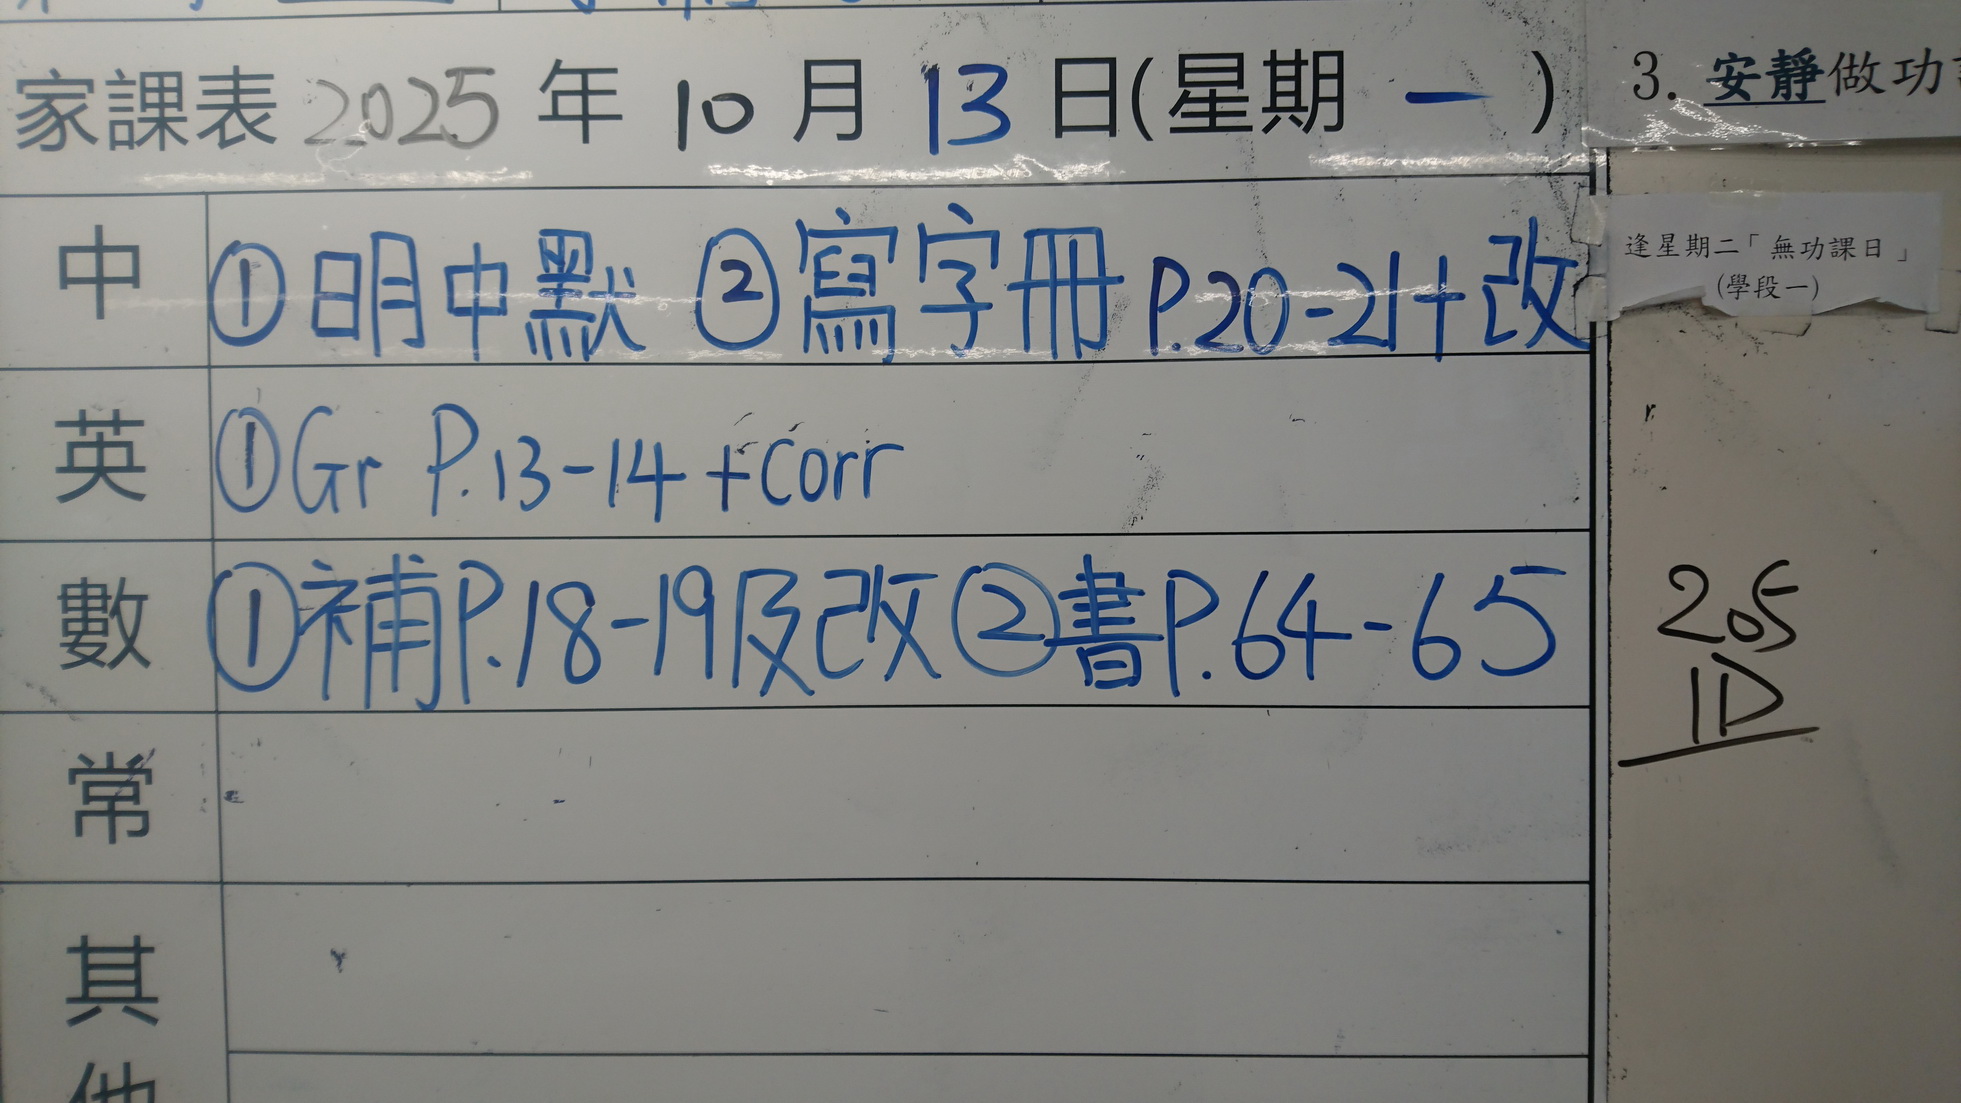 家課表 2025 年 10 月 13 日(星期 一 )
中 ①明中默 ②寫字冊 P.20-21+改
英 ①Gr P.13-14 +Corr
數 ①補P.18-19及改②書P.64-65
常
其他
3. 安靜做功
逢星期二「無功課日」
(學段一)
205
1D